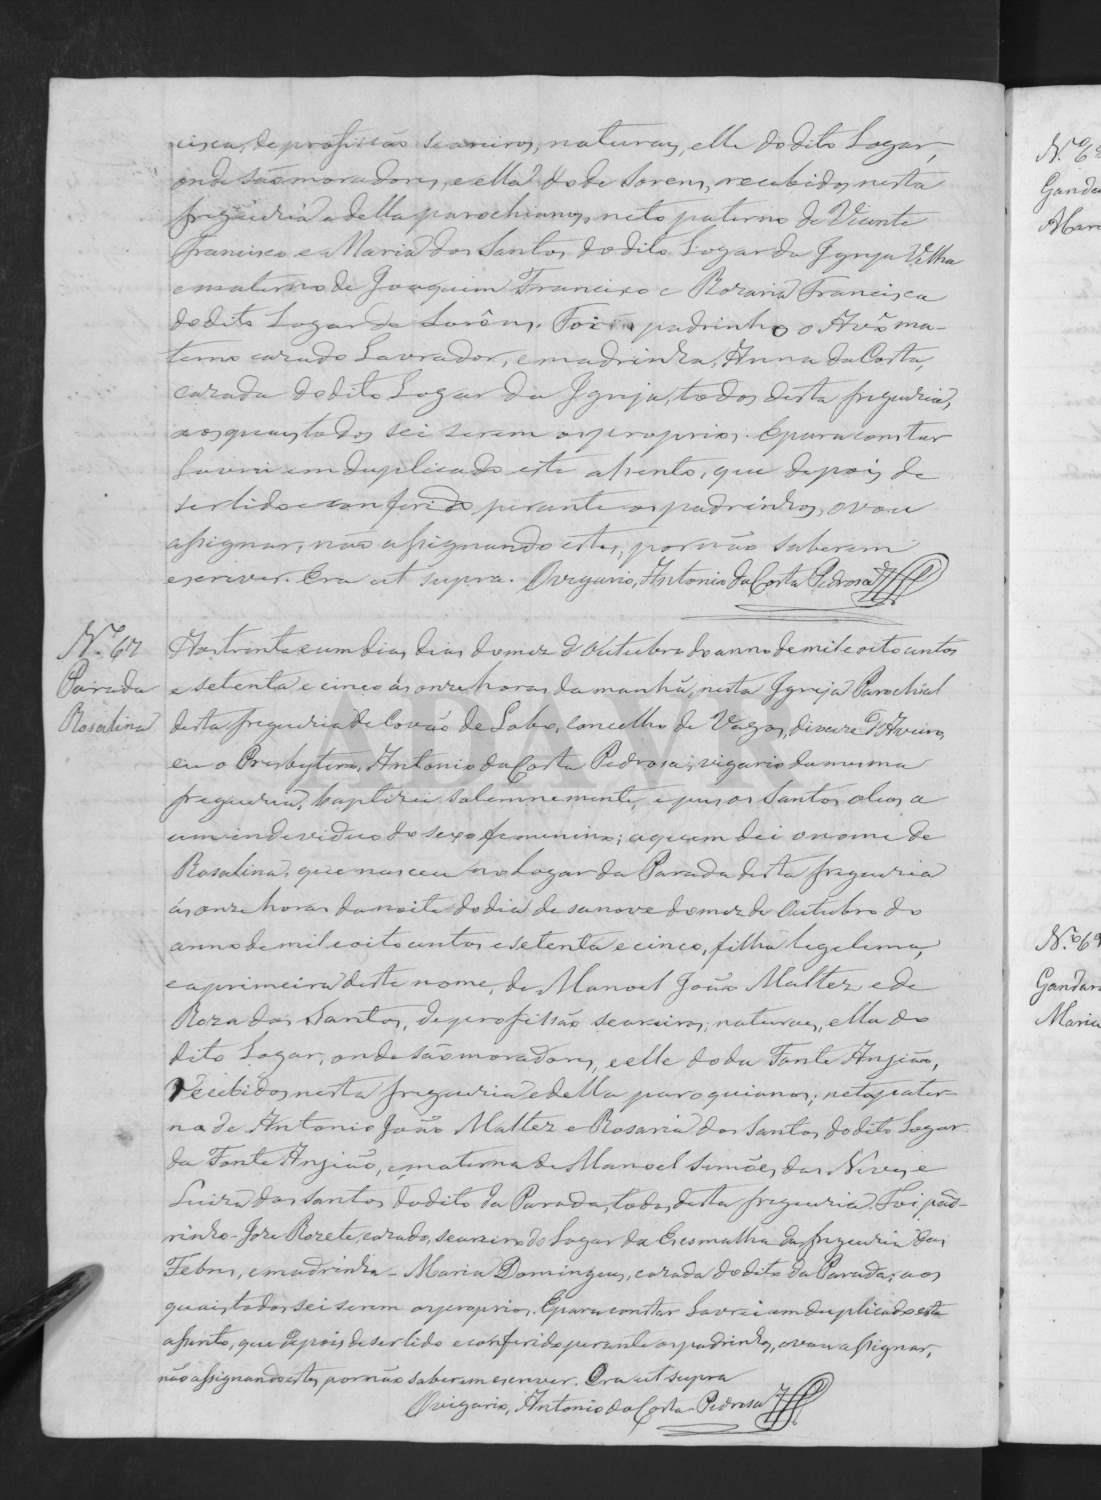 cisca, de profissão seareiros, naturaes, elle do dito Logar,
onde são moradores, e ella do de Sorens, recebidos nesta
freguezia e della parochianos, neto paterno de Vicente
Francisco e Maria dos Santos do dito Logar da Igreja Velha
e materno de Joaquim Francisco e Rozaria Francisca
do dito Logar de Sorêns. Foi padrinho o Avô ma-
terno cazado Lavrador, e madrinha, Anna da Costa,
cazada do dito Logar da Igreja, todos desta freguezia,
aos quaes todos sei serem os proprios. E para constar
Lavrei em duplicado este assento, que depois de
ser lido e conferido perante os padrinhos, o vou
assignar, não assignando estes, por não saberem
escrever. Era ut supra. O vigario, Antonio da Costa Pedrosa
N.º 67
Parada
Rosalina
Aos trinta e um dias dias do mez d'Outubro do anno de mil e oito centos
e setenta e cinco ás onze horas da manhã, nesta Igreja Parochial
desta freguezia de Covão de Lobo, concelho de Vagos, diocese d'Aveiro,
eu o Presbytero, Antonio da Costa Pedrosa, vigario da mesma
freguezia, baptizei solemnemente, e puz os Santos oleos a
um individuo do sexo femenino; a quem dei o nome de
Rosalina, que nasceu no Logar da Parada desta freguezia
ás onze horas da noite do dia desanove do mez de Outubro do
anno de mil e oito centos e setenta e cinco, filha legetema,
e a primeira deste nome, de Manoel João Maltez e de
Roza dos Santos, de profissão seareiros, naturaes, ella do
dito Logar, onde são moradores, e elle do da Fonte Anjião,
recebidos nesta freguezia e della paroquianos; neta pater-
na de Antonio João Maltez e Rosaria dos Santos do dito Logar
da Fonte Anjião, e materna de Manoel Simões das Neves e
Luiza dos Santos do dito da Parada, todos desta freguezia. Foi pad-
rinho - Joze Rozete, cazado, seareiro do Logar da Gesmalha da freguezia das
Febres, e madrinha - Maria Domingues, cazada do dito da Parada; aos
quais todos sei serem os proprios. E para constar Lavrei em duplicado este
assento, que depois de ser lido e conferido perante os padrinhos, o vou assignar,
não assignando estes, por não saberem escrever. Era ut supra
O vigario, Antonio da Costa Pedrosa
Gandar
Maria
N.º 69
Gandara
Maria
ADAVR